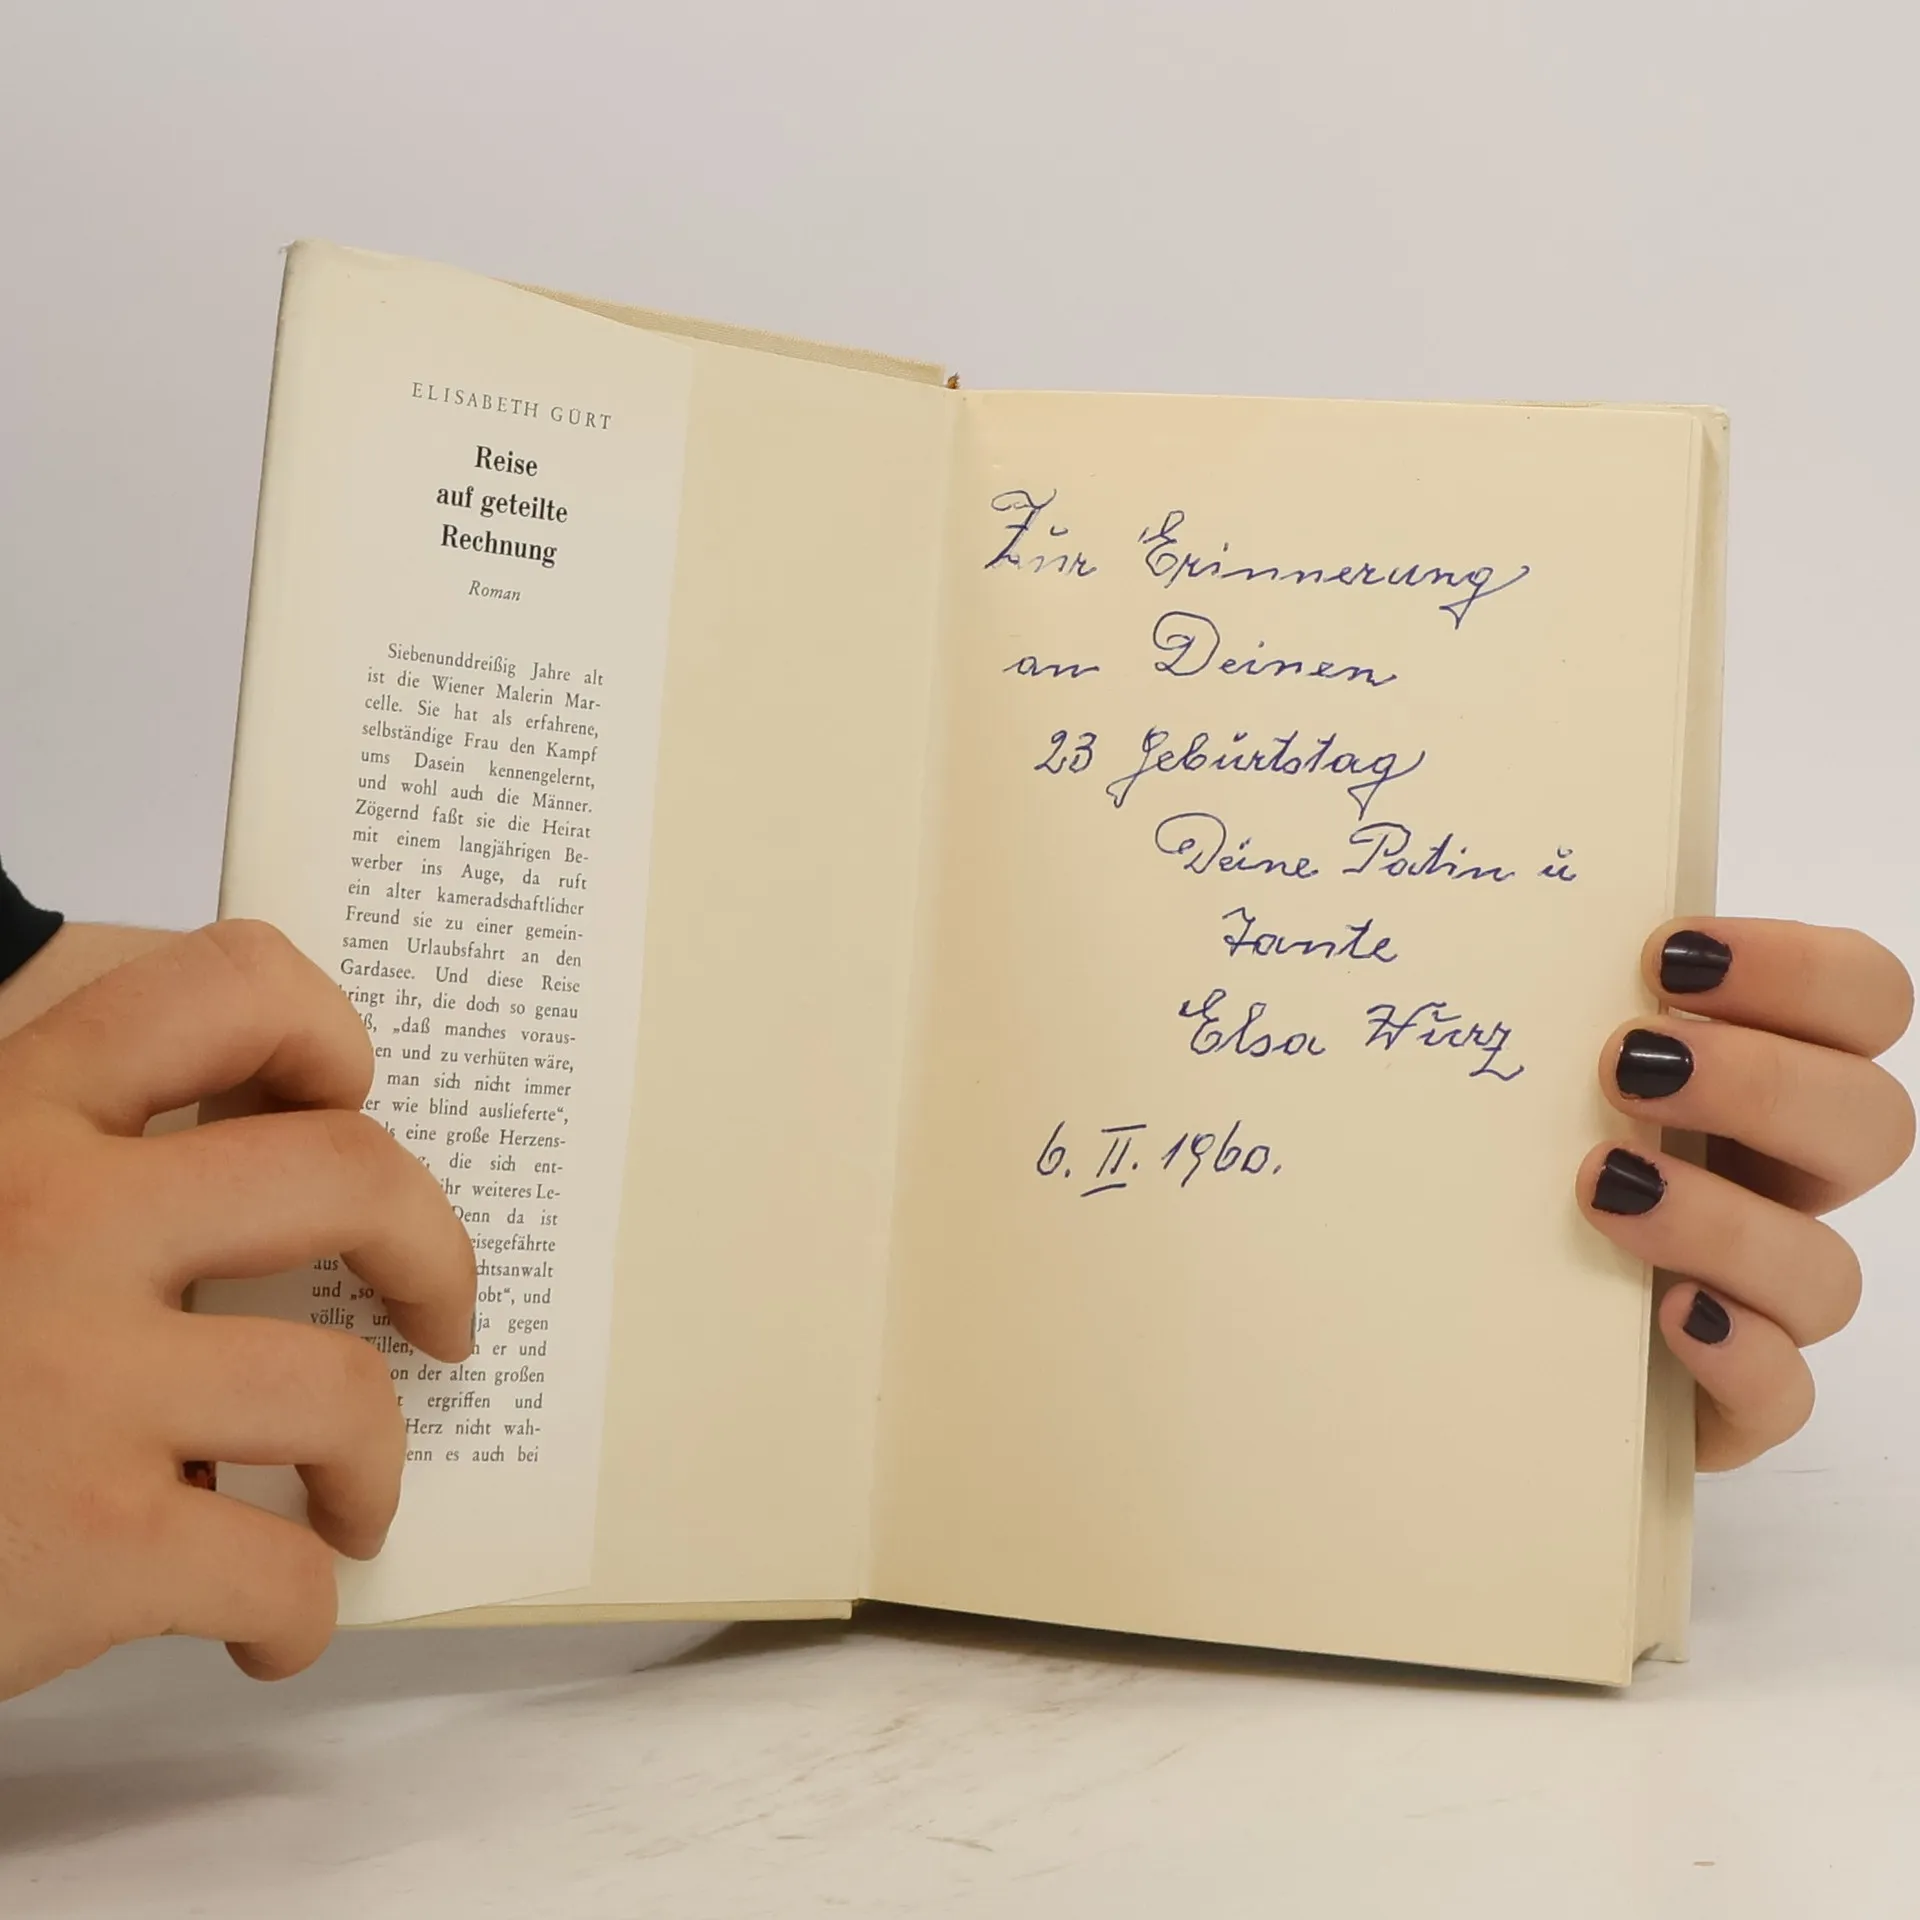 ELISABETH GÜRT
Reise
auf geteilte
Rechnung
Roman
Siebenunddreißig Jahre alt
ist die Wiener Malerin Mar-
celle. Sie hat als erfahrene,
selbständige Frau den Kampf
ums Dasein kennengelernt,
und wohl auch die Männer.
Zögernd faßt sie die Heirat
mit einem langjährigen Be-
werber ins Auge, da ruft
ein alter kameradschaftlicher
Freund sie zu einer gemein-
samen Urlaubsfahrt an den
Gardasee. Und diese Reise
bringt ihr, die doch so genau
„daß manches voraus-
und zu verhüten wäre,
man sich nicht immer
wie blind auslieferte“,
eine große Herzens-
die sich ent-
ihr weiteres Le-
Denn da ist
aus
und „so und
völlig ja gegen
er und
der alten großen
ergriffen und
Herz nicht wah-
es auch bei
Zur Erinnerung
an Deinen
23 Geburtstag
Deine Patin u
Tante
Elsa Wurz
6. II. 1960.